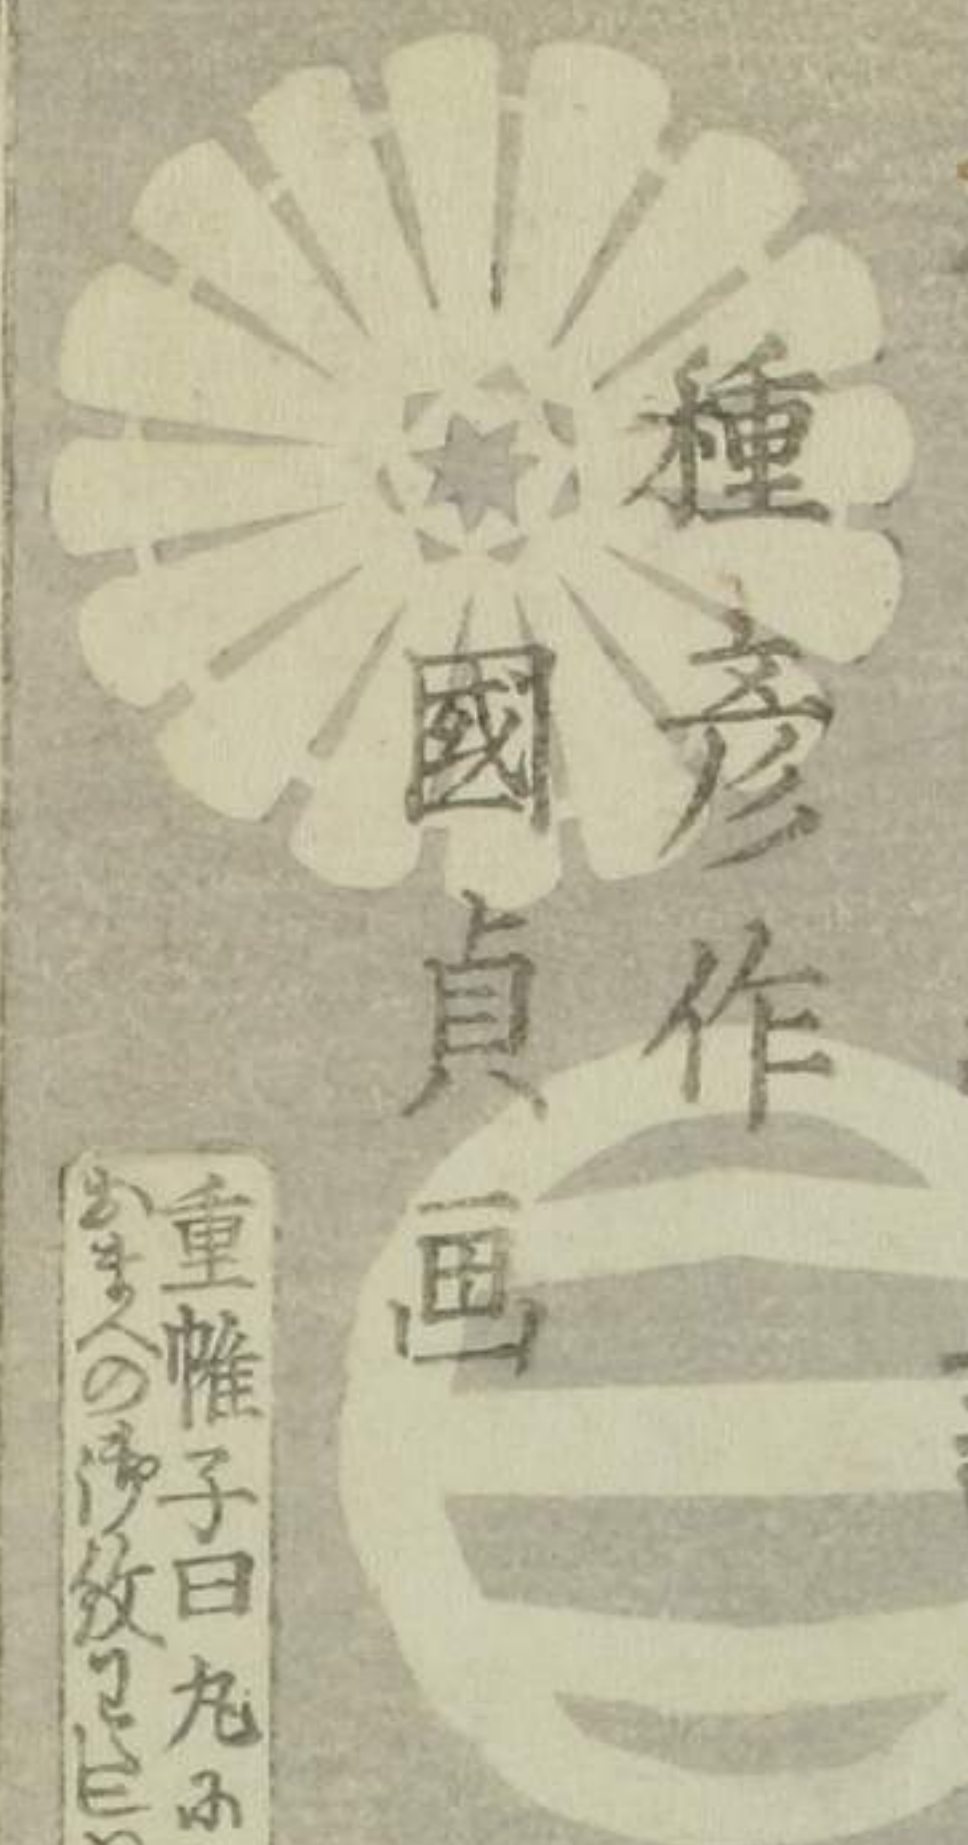 種彦作
國貞画
重帷子曰丸に
人の御紋